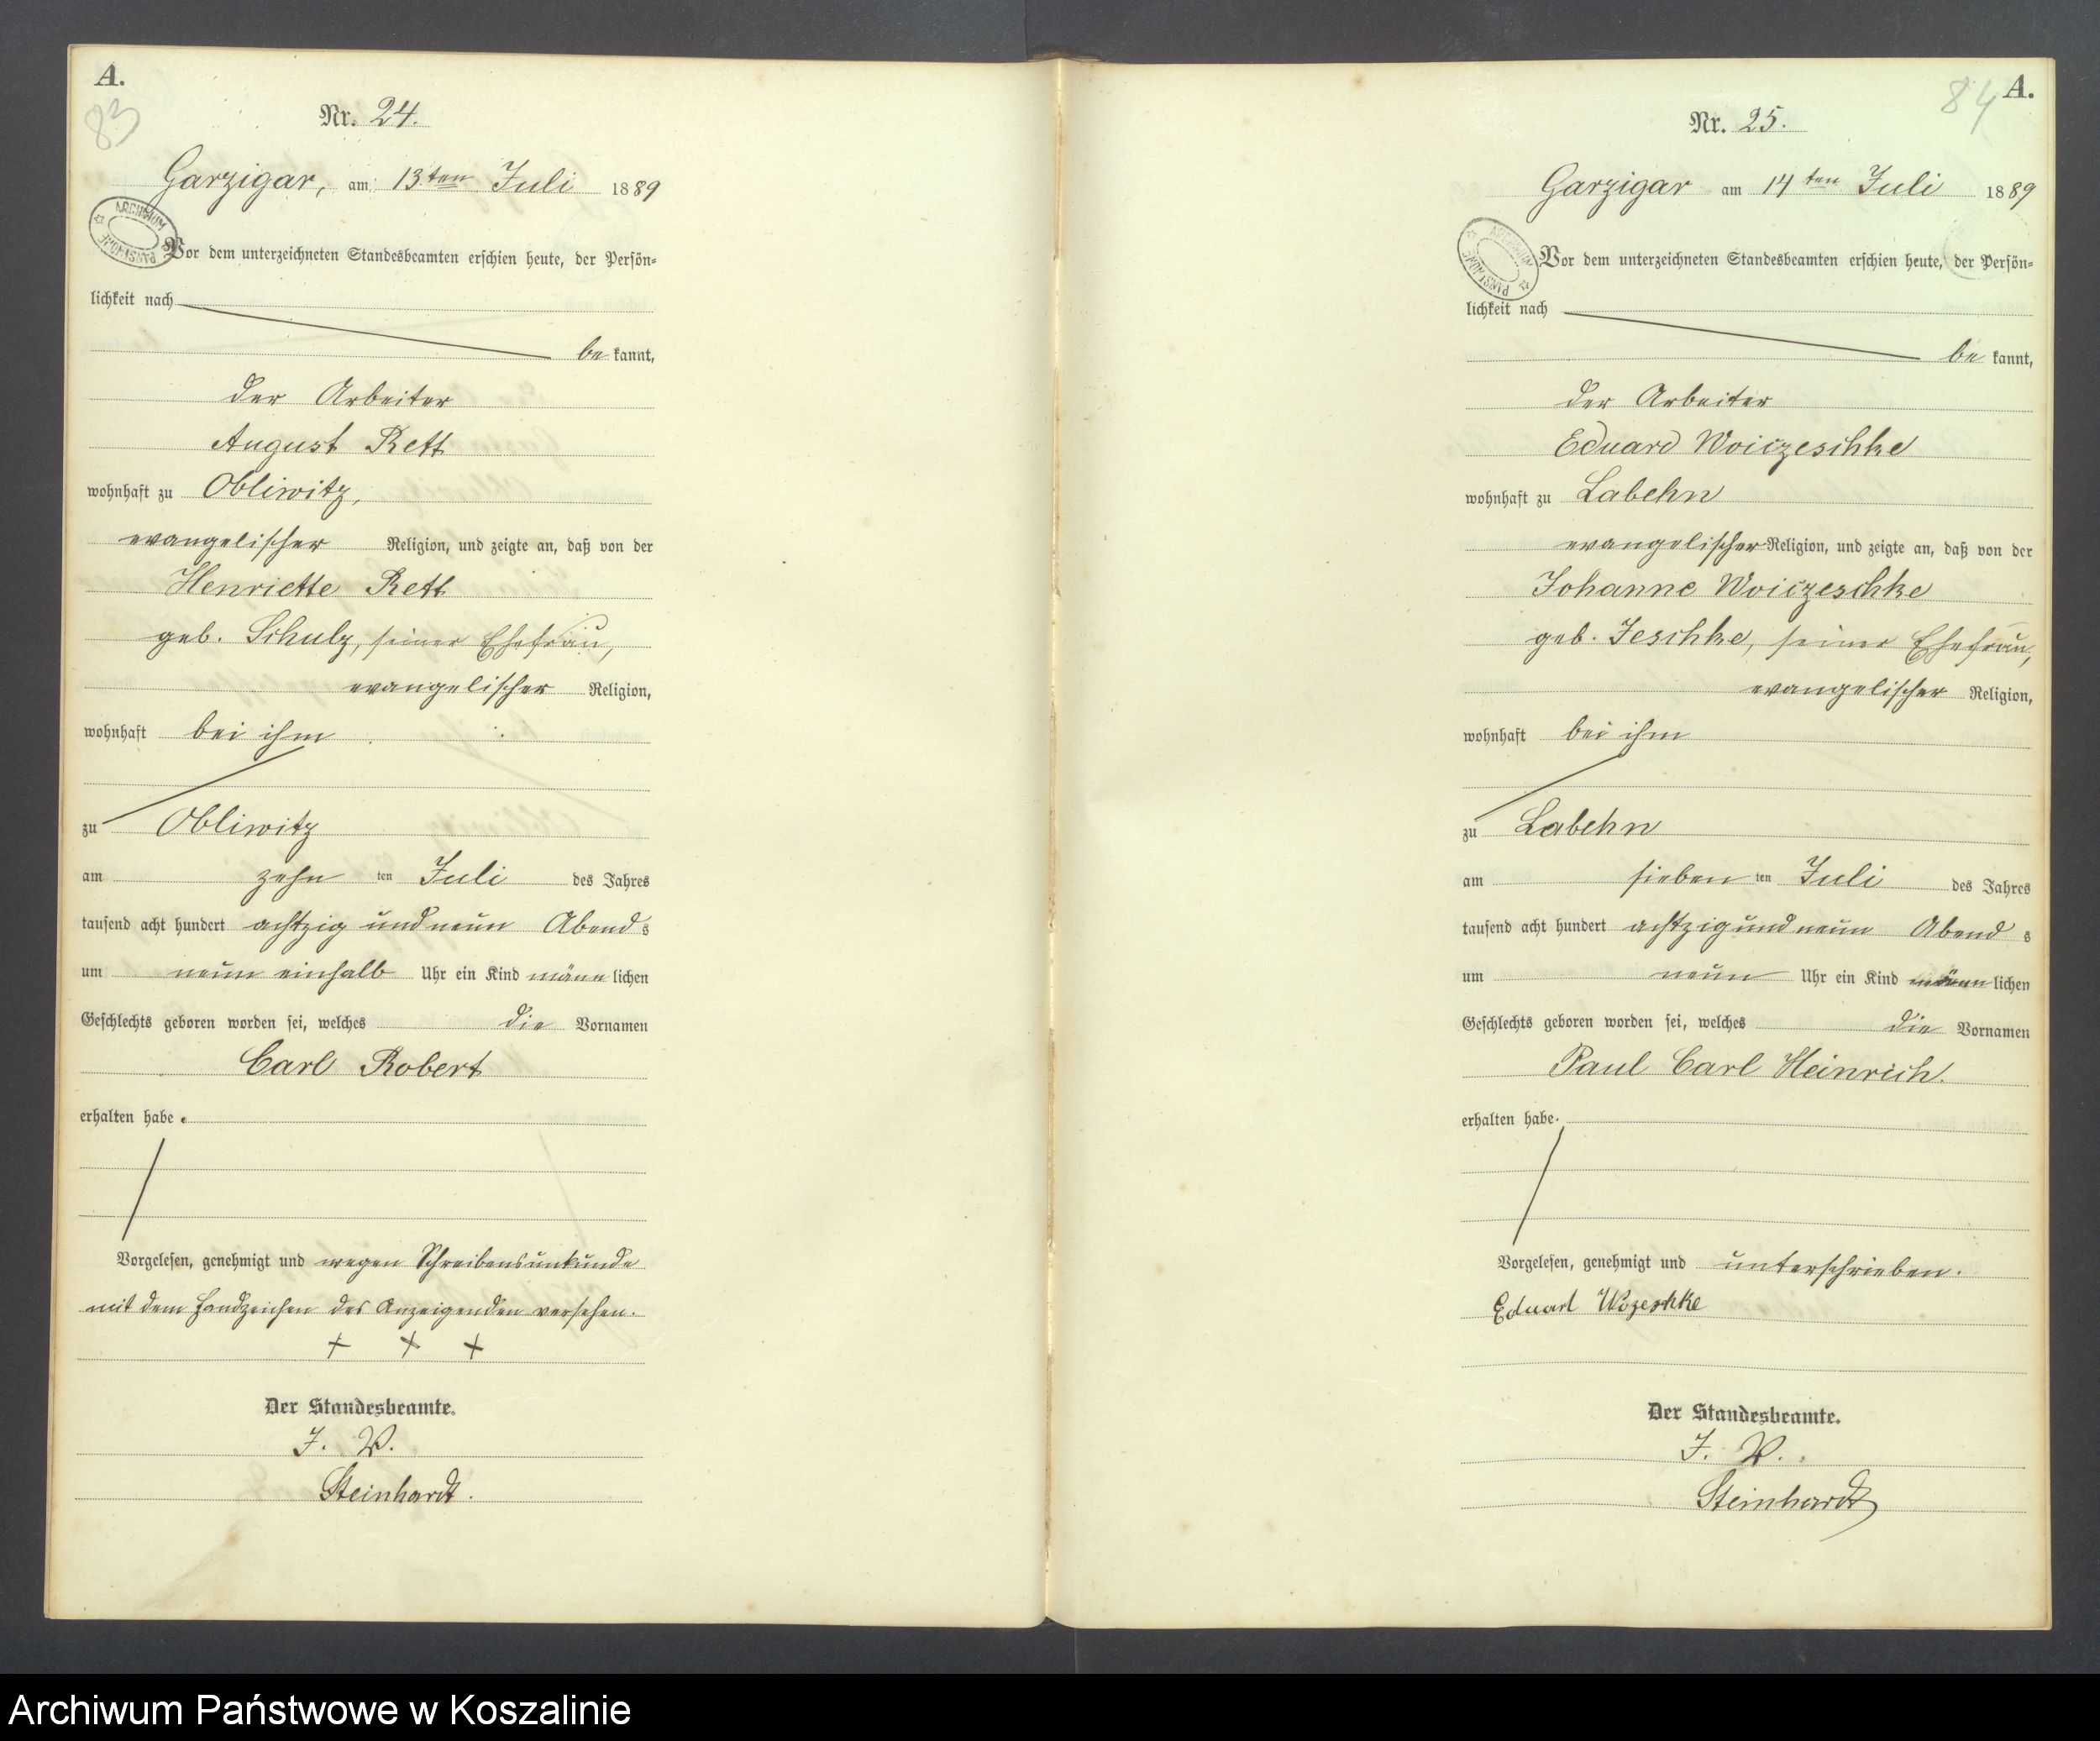 A.
83
Nr. 24.
Garzigar, am 13.ten Juli 1889
ARCHIWUM PAŃSTWOWE
Vor dem unterzeichneten Standesbeamten erschien heute, der Persön=
lichkeit nach
be kannt,
der Arbeiter
August Rett
wohnhaft zu Obliwitz,
evangelischer Religion, und zeigte an, daß von der
Henriette Rett
geb. Schulz, seiner Ehefrau,
evangelischer Religion,
wohnhaft bei ihm
zu Obliwitz
am zehn ten Juli des Jahres
tausend acht hundert achtzig und neun Abend s
um neun einhalb Uhr ein Kind männ lichen
Geschlechts geboren worden sei, welches die Vornamen
Carl Robert
erhalten habe.
Vorgelesen, genehmigt und wegen Schreibensunkunde
mit dem Handzeichen des Anzeigenden versehen.
+ + +
Der Standesbeamte.
J. V.
Steinhardt.
84 A.
Nr. 25.
Garzigar am 14 ten Juli 1889
ARCHIWUM PAŃSTWOWE
Vor dem unterzeichneten Standesbeamten erschien heute, der Persön=
lichkeit nach
be kannt,
der Arbeiter
Eduard Woiczeschke
wohnhaft zu Labehn
evangelischer Religion, und zeigte an, daß von der
Johanne Woiczeschke
geb. Jeschke, seiner Ehefrau,
evangelischer Religion,
wohnhaft bei ihm
zu Labehn
am sieben ten Juli des Jahres
tausend acht hundert achtzig und neun Abend s
um neun Uhr ein Kind männ lichen
Geschlechts geboren worden sei, welches die Vornamen
Paul Carl Heinrich.
erhalten habe.
Vorgelesen, genehmigt und unterschrieben.
Eduard Wozeschke
Der Standesbeamte.
J. V.
Steinhardt
Archiwum Państwowe w Koszalinie